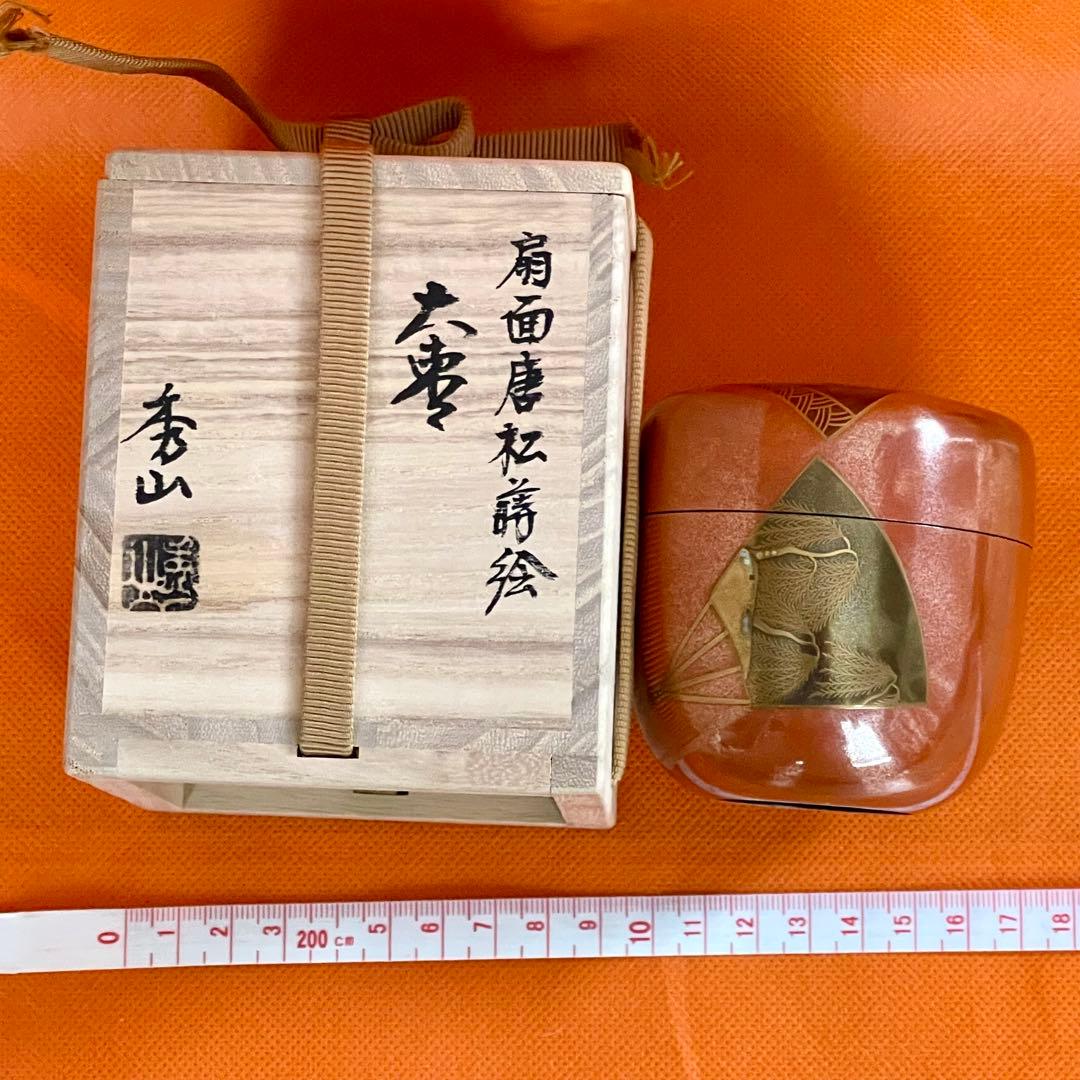 扇面唐松蒔絵
大棗
秀山
0 1 2 3 200 cm 5 6 7 8 9 10 11 12 13 14 15 16 17 18